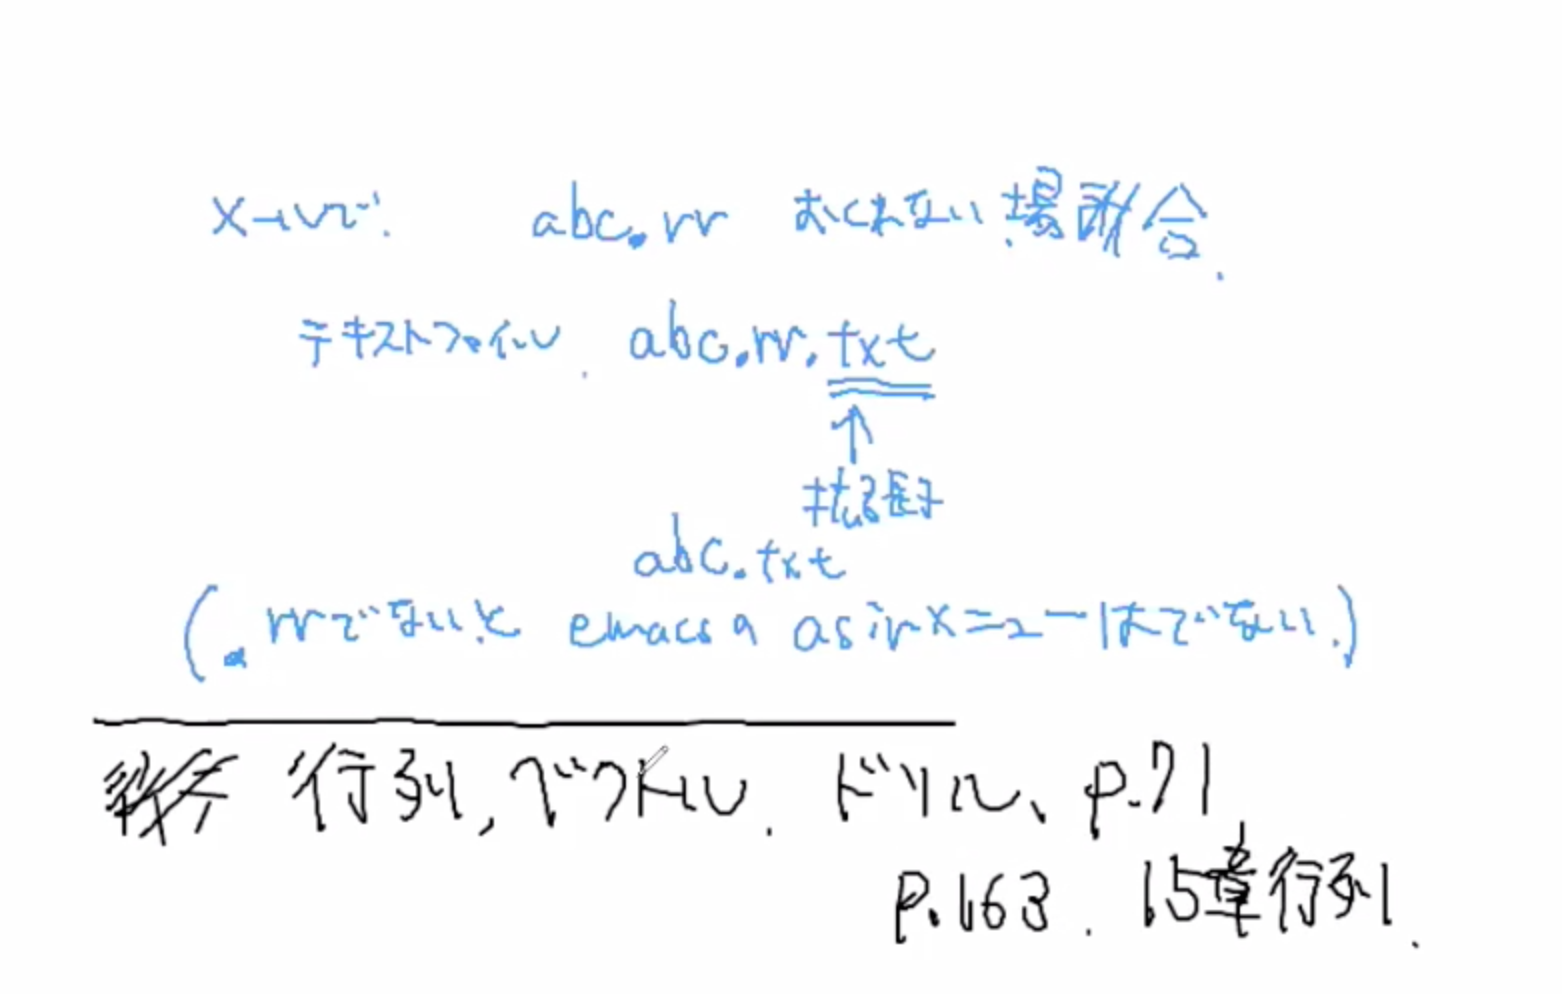 メールで. abc.rr おくれない場合.
テキストファイル. abc.rr.txt
拡張子
abc.txt
(.rrでないと emacsの asirメニューはでない.)
行列, ベクトル. ドリル、p.71
p.163. 15章行列.